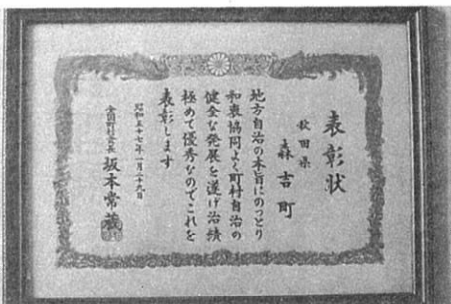 表彰状
秋田県
森吉町
地方自治の本旨にのっとり
和衷協同よく町村自治の
健全な発展を遂げ治績
極めて優秀なのでこれを
表彰します
昭和五十七年一月二十九日
全国町村会長 坂本常蔵